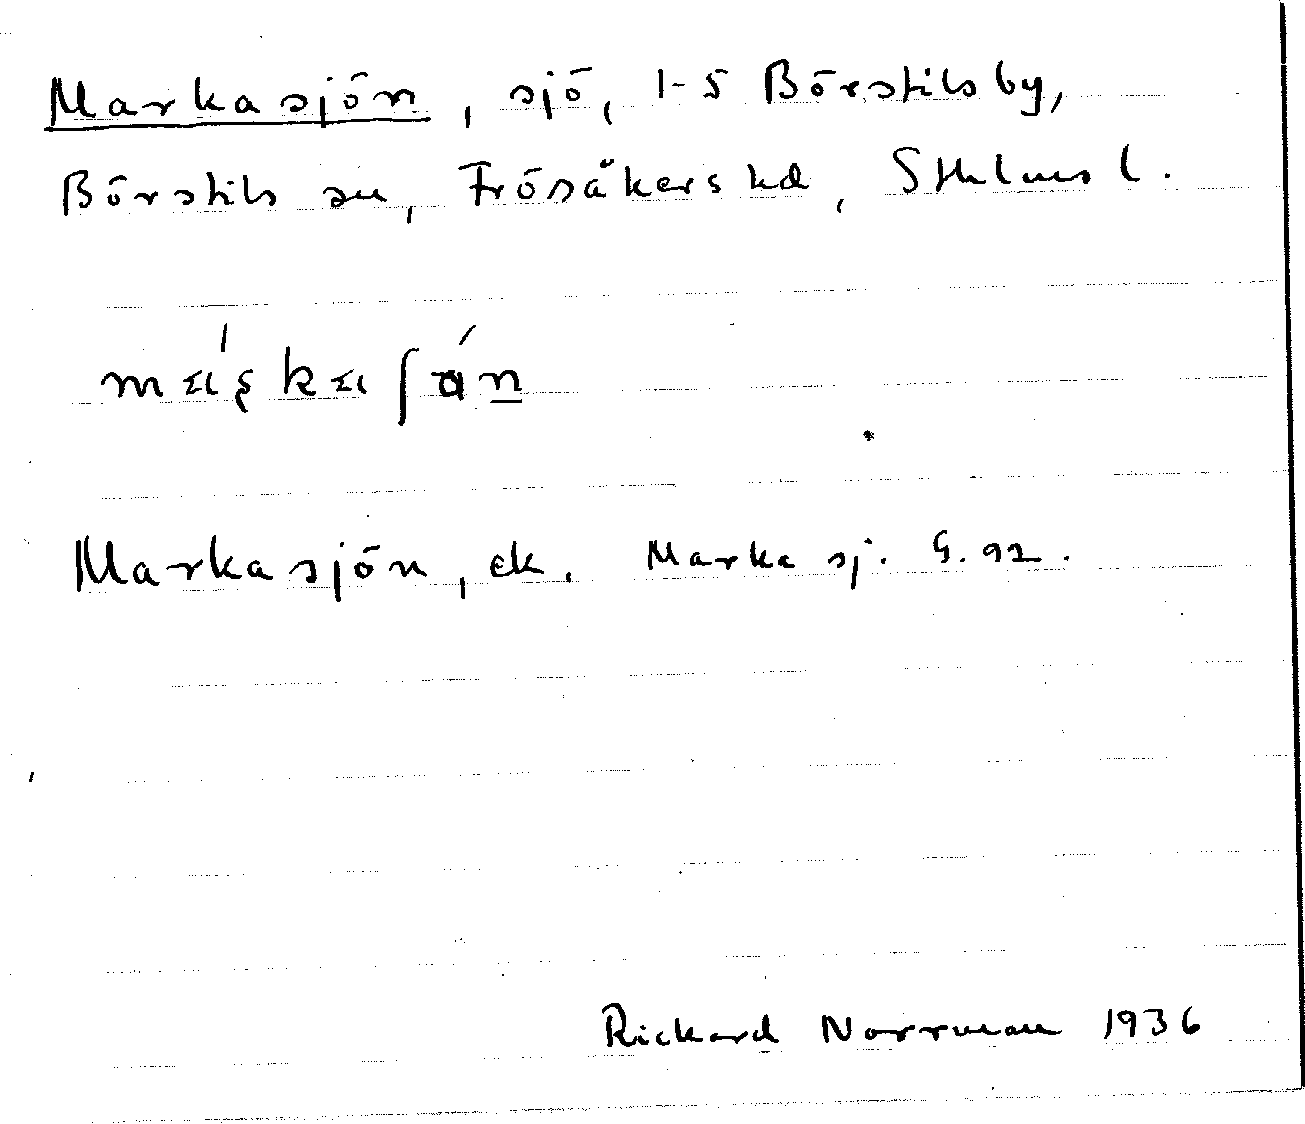 Markasjön, sjö, 1-5 Börstilsby,
Börstils sn, Frösåkers hd, Sthlms l.
Markasjön, ek. Marka sj. G. 92.
Rickard Norrman 1936